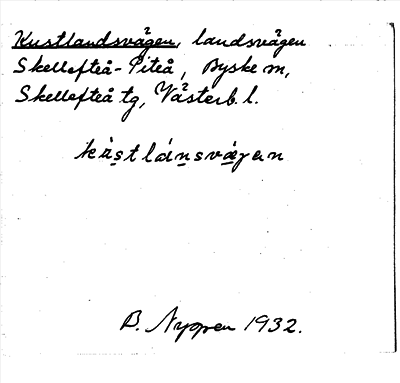 Kustlandsvägen, landsvägen
Skellefteå-Piteå, Byske sn,
Skellefteå tg, Västerb. l.
B. Nyppen 1932.